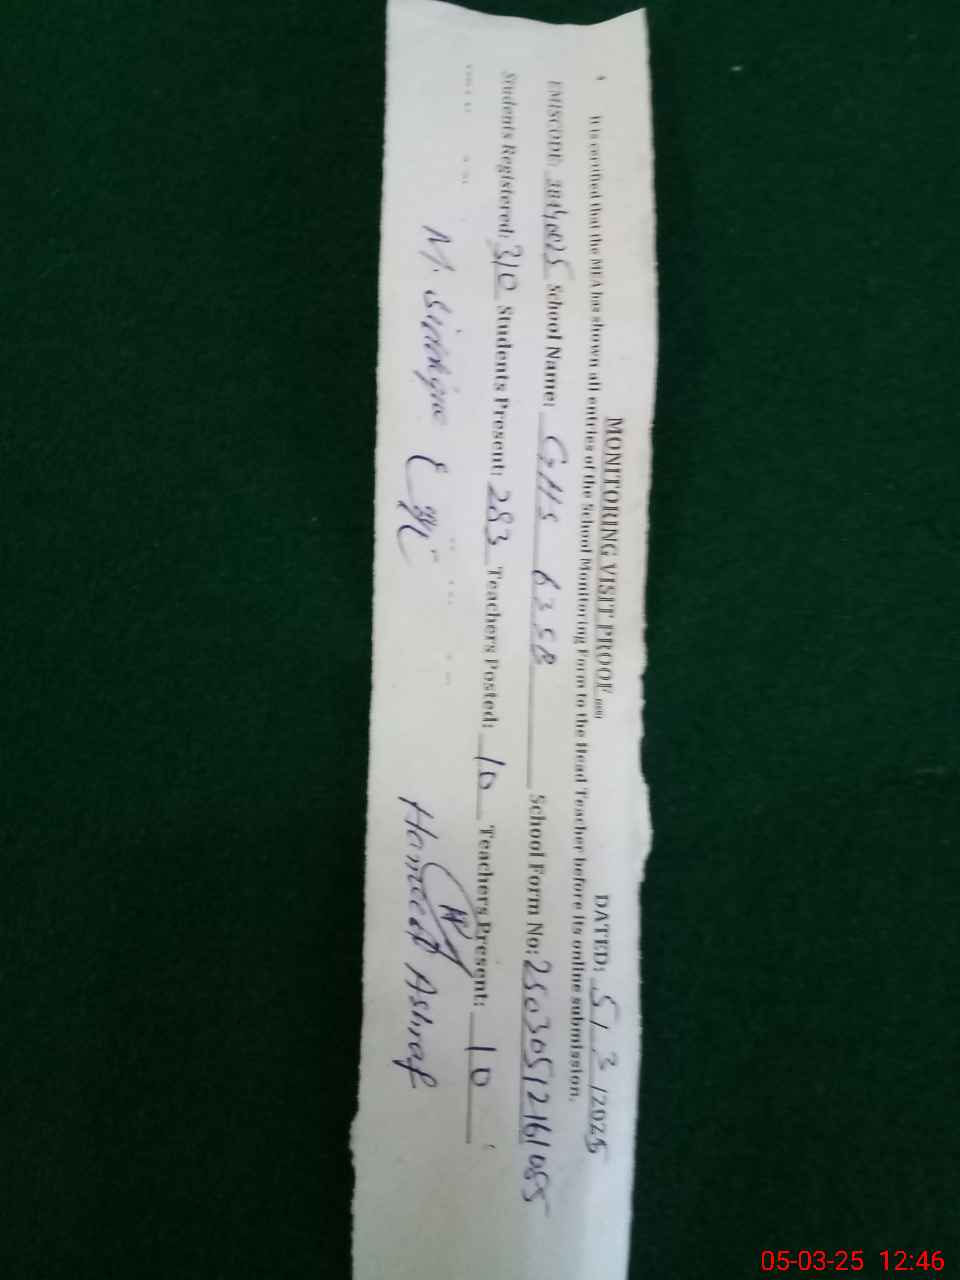 MONITORING VISIT PROOF DATED: 5/3/2025
It is certified that the MEA has shown all entries of the School Monitoring Form to the Head Teacher before its online submission.
EMISCODE: School Name: GHS 63 SB School Form No: 25030512161085
Students Registered: 310 Students Present: 283 Teachers Posted: 10 Teachers Present: 10
M. Siddique Hameed Ashraf
05-03-25 12:46